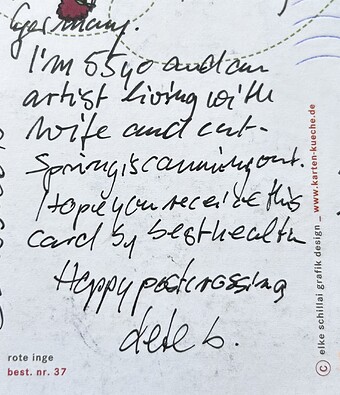 Germany.
I'm 55yo and an
artist living with
wife and cat-
Spring is canning out.
Hope you receive this
card by best health
Happy postcrossing
b.
rote inge
best. nr. 37
© elke schillai grafik design _ www.karten-kueche.de